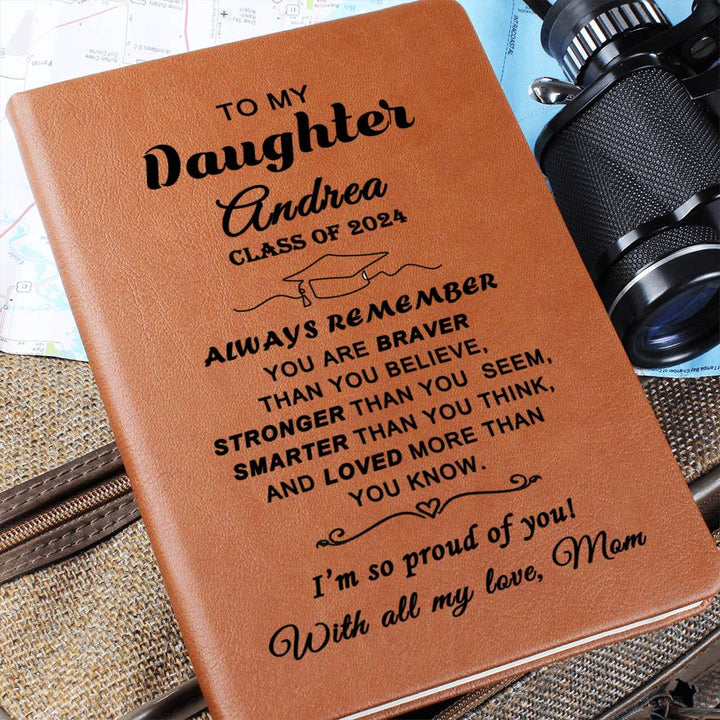 TO MY
Daughter
Andrea
CLASS OF 2024
ALWAYS REMEMBER
YOU ARE BRAVER
THAN YOU BELIEVE,
STRONGER THAN YOU SEEM,
SMARTER THAN YOU THINK,
AND LOVED MORE THAN
YOU KNOW.
I'm so proud of you!
With all my love, Mom